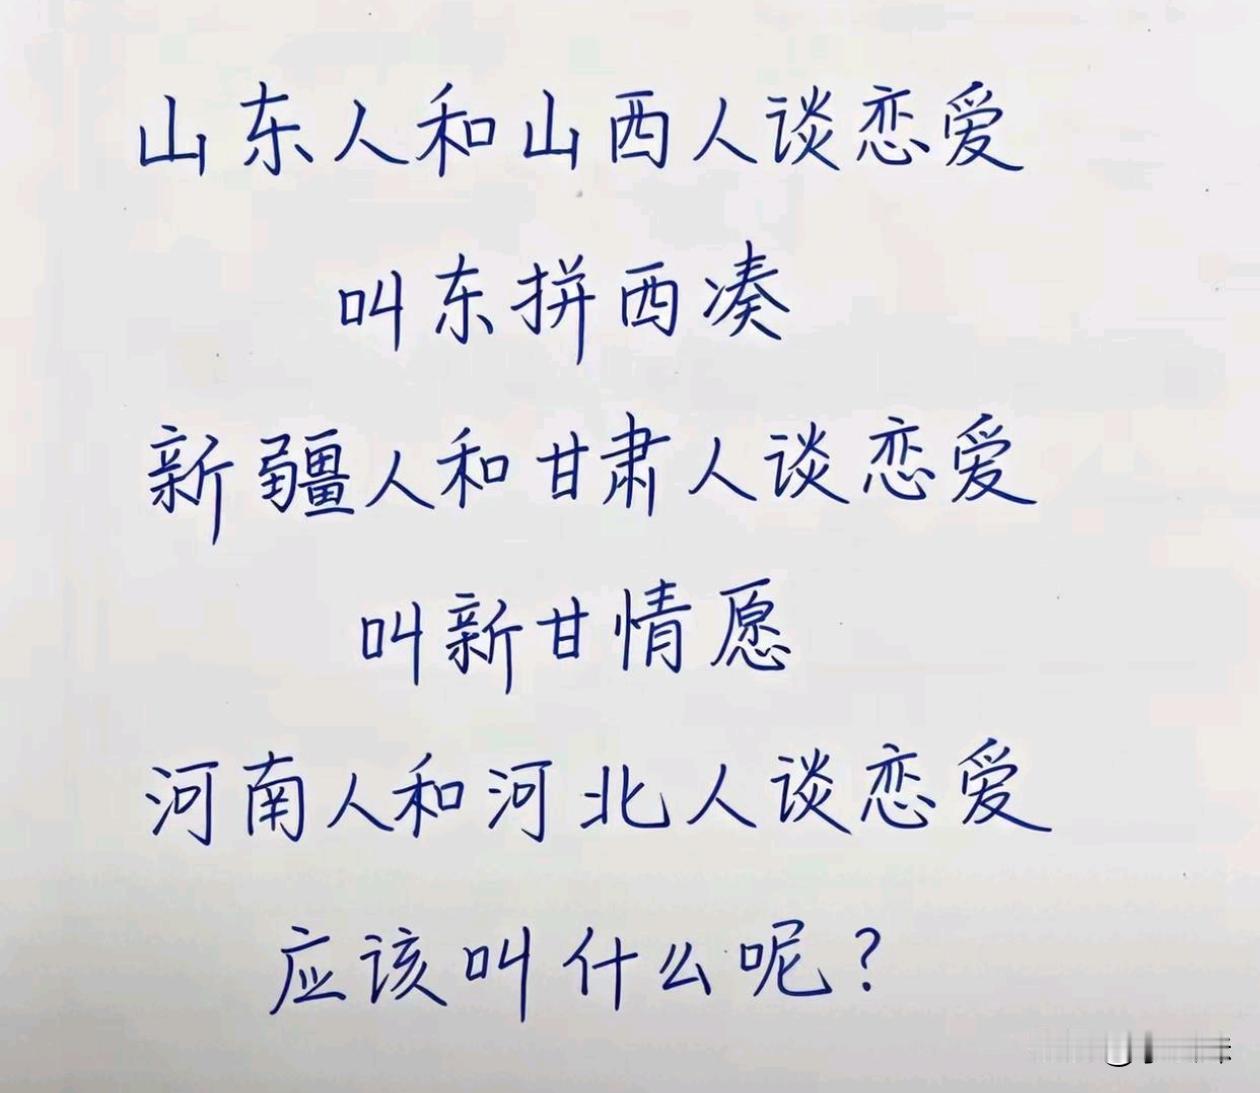 山东人和山西人谈恋爱
叫东拼西凑
新疆人和甘肃人谈恋爱
叫新甘情愿
河南人和河北人谈恋爱
应该叫什么呢?